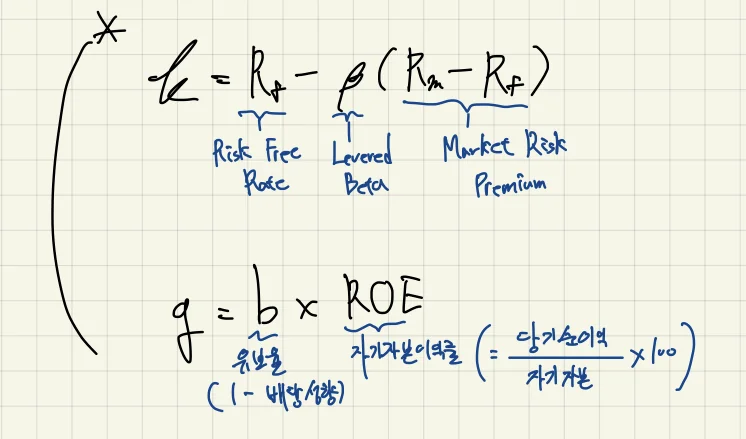 * k = Rf - β (Rm - Rf)
Risk Free Rate
Levered Beta
Market Risk Premium
g = b × ROE
유보율
(1 - 배당성향)
자기자본이익률 (= 당기순이익 / 자기자본 × 100)